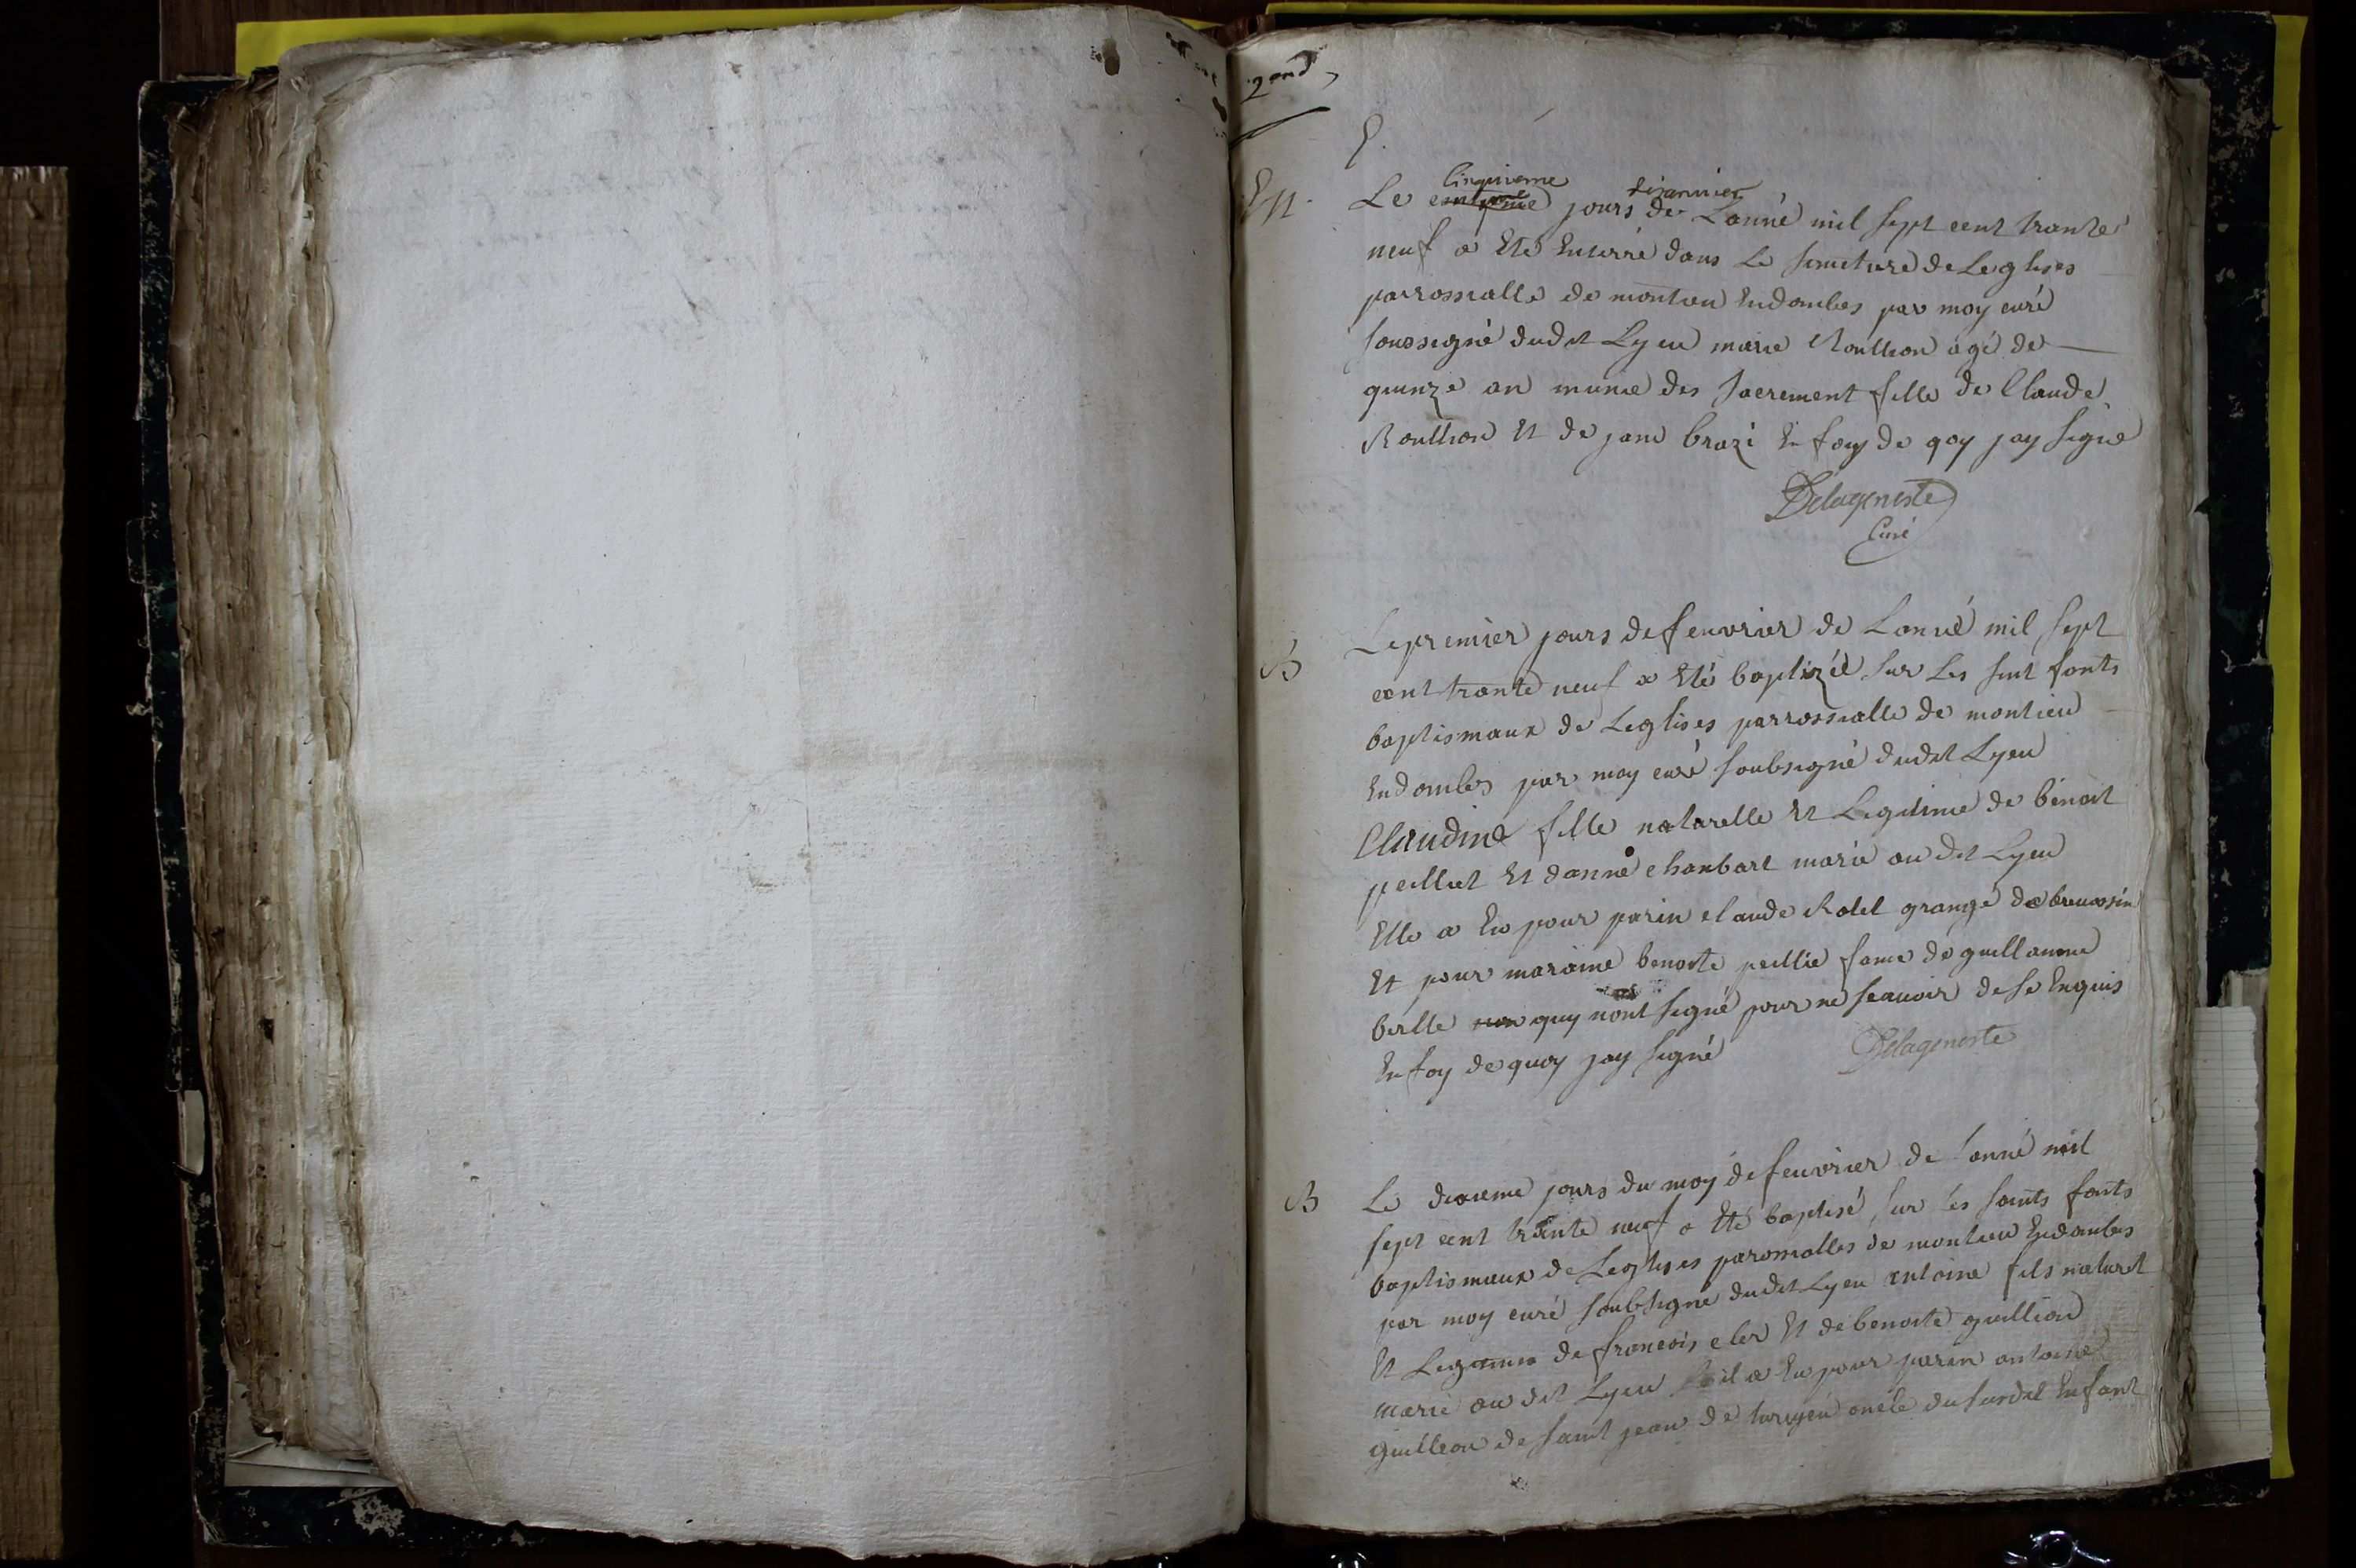 2ond
E.
En.
Cinquieme dejanvier
Le jours de Lanné mil sept cent trante
neuf a Eté Enterré dans Le simeture de Leglises
parrossialle de montieu Endombes par moy curé
soussigné dudit Lyeu marie Roullion agé de
quinze an munie des sacrement fille de Claude
Roullion Et de jane brazi En foy de qoy jay signé
Delageneste
Curé
B
Le premier jours de feuvrier de Lanné mil sept
cent trante neuf a Eté baptizéé sur Les sint fonts
baptismaux de Leglises parrossialle de montieu
Endombes par moy curé soubsigné dudit Lyeu
Claudine fille naturelle Et Legitime de benoit
peilliet Et danne chanbart marié au dit Lyeu
Elle a Eu pour parin claude Rolet grangé de
Et pour maraine benoite peillié fame de guillaume
berlle quy nont signé pour ne scauoir de se Enquis
En foy de quoy jay signé Delageneste
B
Le dixieme jours du moy de feuvrier de lanné mil
sept cent trante neuf a Eté baptisé sur les saints fonts
baptismaux de Leglises parrossialles de montieu Endombes
par moy curé soubsigné dudit Lyeu antoine fils naturel
Et Legitime de francois cler Et de benoite guillion
marié au dit Lyeu il a Eu pour parin antoine
guilleon de saint jean de turigneu oncle du susdit Enfant